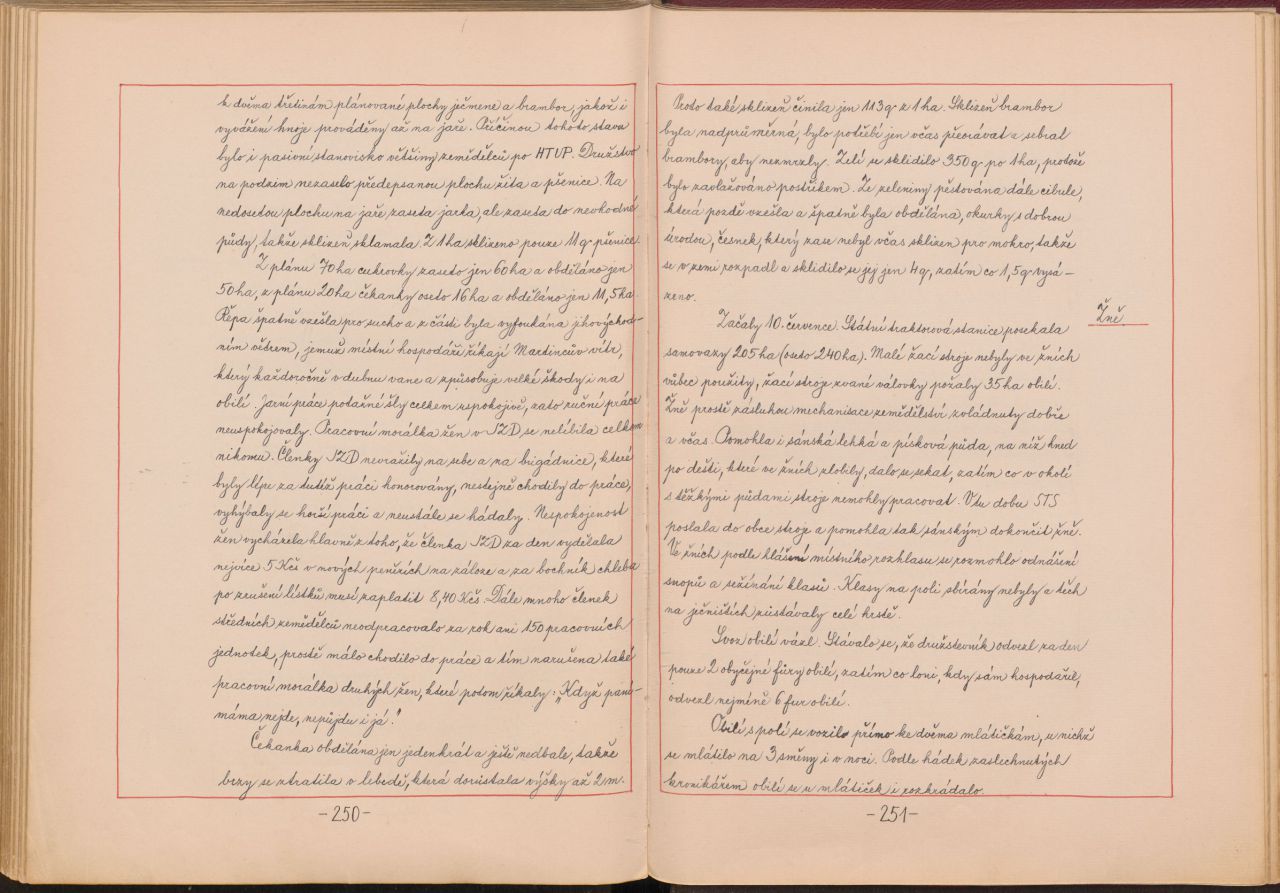 k dvěma třetinám plánované plochy ječmene a brambor, jakož i
vyvážení hnoje prováděny až na jaře. Příčinou tohoto stavu
bylo i pasivní stanovisko většiny zemědělců po HTUP. Družstvo
na podzim nezaselo předepsanou plochu žita a pšenice. Na
nedosetou plochu na jaře zaseta jarka, ale zaseta do nevhodné
půdy, takže sklizeň sklamala. Z 1 ha sklizeno pouze 11 q pšenice.
Z plánu 70 ha cukrovky zaseto jen 60 ha a obděláno jen
50 ha, z plánu 20 ha čekanky oseto 16 ha a obděláno jen 11,5 ha.
Řepa špatně vzešla pro sucho a z části byla vyfoukána jihovýchod-
ním větrem, jemuž místní hospodáři říkají Martincův vítr,
který každoročně v dubnu vane a způsobuje velké škody i na
obilí. Jarní práce potažné šly celkem uspokojivě, zato ruční práce
neuspokojovaly. Pracovní morálka žen v JZD se nelíbila celkem
nikomu. Členky JZD nevražily na sebe a na brigádnice, které
byly lépe za tutéž práci honorovány, nestejně chodily do práce,
vyhýbaly se horší práci a neustále se hádaly. Nespokojenost
žen vycházela hlavně z toho, že členka JZD za den vydělala
nejvíce 5 Kčs v nových penězích na záloze a za bochník chleba
po zrušení lístků musí zaplatit 8,40 Kčs. Dále mnoho členek
středních zemědělců neodpracovalo za rok ani 150 pracovních
jednotek, prostě málo chodilo do práce a tím narušena také
pracovní morálka druhých žen, které potom říkaly: „Když pani-
máma nejde, nepůjdu i já."
Čekanka obdělána jen jedenkrát a ještě nedbale, takže
brzy se ztratila v lebedě, která dorůstala výšky až 2 m.
-250-
Proto také sklizeň činila jen 113 q z 1 ha. Sklizeň brambor
byla nadprůměrná, bylo potřebí jen včas přeorávat a sebrat
brambory, aby nezmrzly. Zelí se sklidilo 350 q po 1 ha, protože
bylo zavlažováno postřikem. Ze zeleniny pěstována dále cibule,
která pozdě vzešla a špatně byla obdělána, okurky s dobrou
úrodou, česnek, který zase nebyl včas sklizen pro mokro, takže
se v zemi rozpadl a sklidilo se jej jen 4 q, zatím co 1,5 q vysá-
zeno.
Žně
Začaly 10. července. Státní traktorová stanice posekala
samovazy 205 ha (oseto 240 ha). Malé žací stroje nebyly ve žních
vůbec použity, žací stroje zvané válovky požaly 35 ha obilí.
Žně prostě zásluhou mechanisace zemědělství zvládnuty dobře
a včas. Pomohla i sánská lehká a písková půda, na níž hned
po dešti, které ve žních zlobily, dalo se sekat, zatím co v okolí
s těžkými půdami stroje nemohly pracovat. V tu dobu STS
poslala do obce stroje a pomohla tak sánským dokončit žně.
Ve žních podle hlášení místního rozhlasu se rozmohlo odnášení
snopů a sežínání klasů. Klasy na poli sbírány nebyly a těch
na ječništích zůstávaly celé hrstě.
Svoz obilí vázl. Stávalo se, že družstevník odvezl za den
pouze 2 obyčejné fůry obilí, zatím co loni, kdy sám hospodařil,
odvezl nejméně 6 fur obilí.
Obilí s polí se vozilo přímo ke dvěma mlátičkám, u nichž
se mlátilo na 3 směny i v noci. Podle hádek zaslechnutých
kronikářem obilí se u mlátiček i rozkrádalo.
-251-